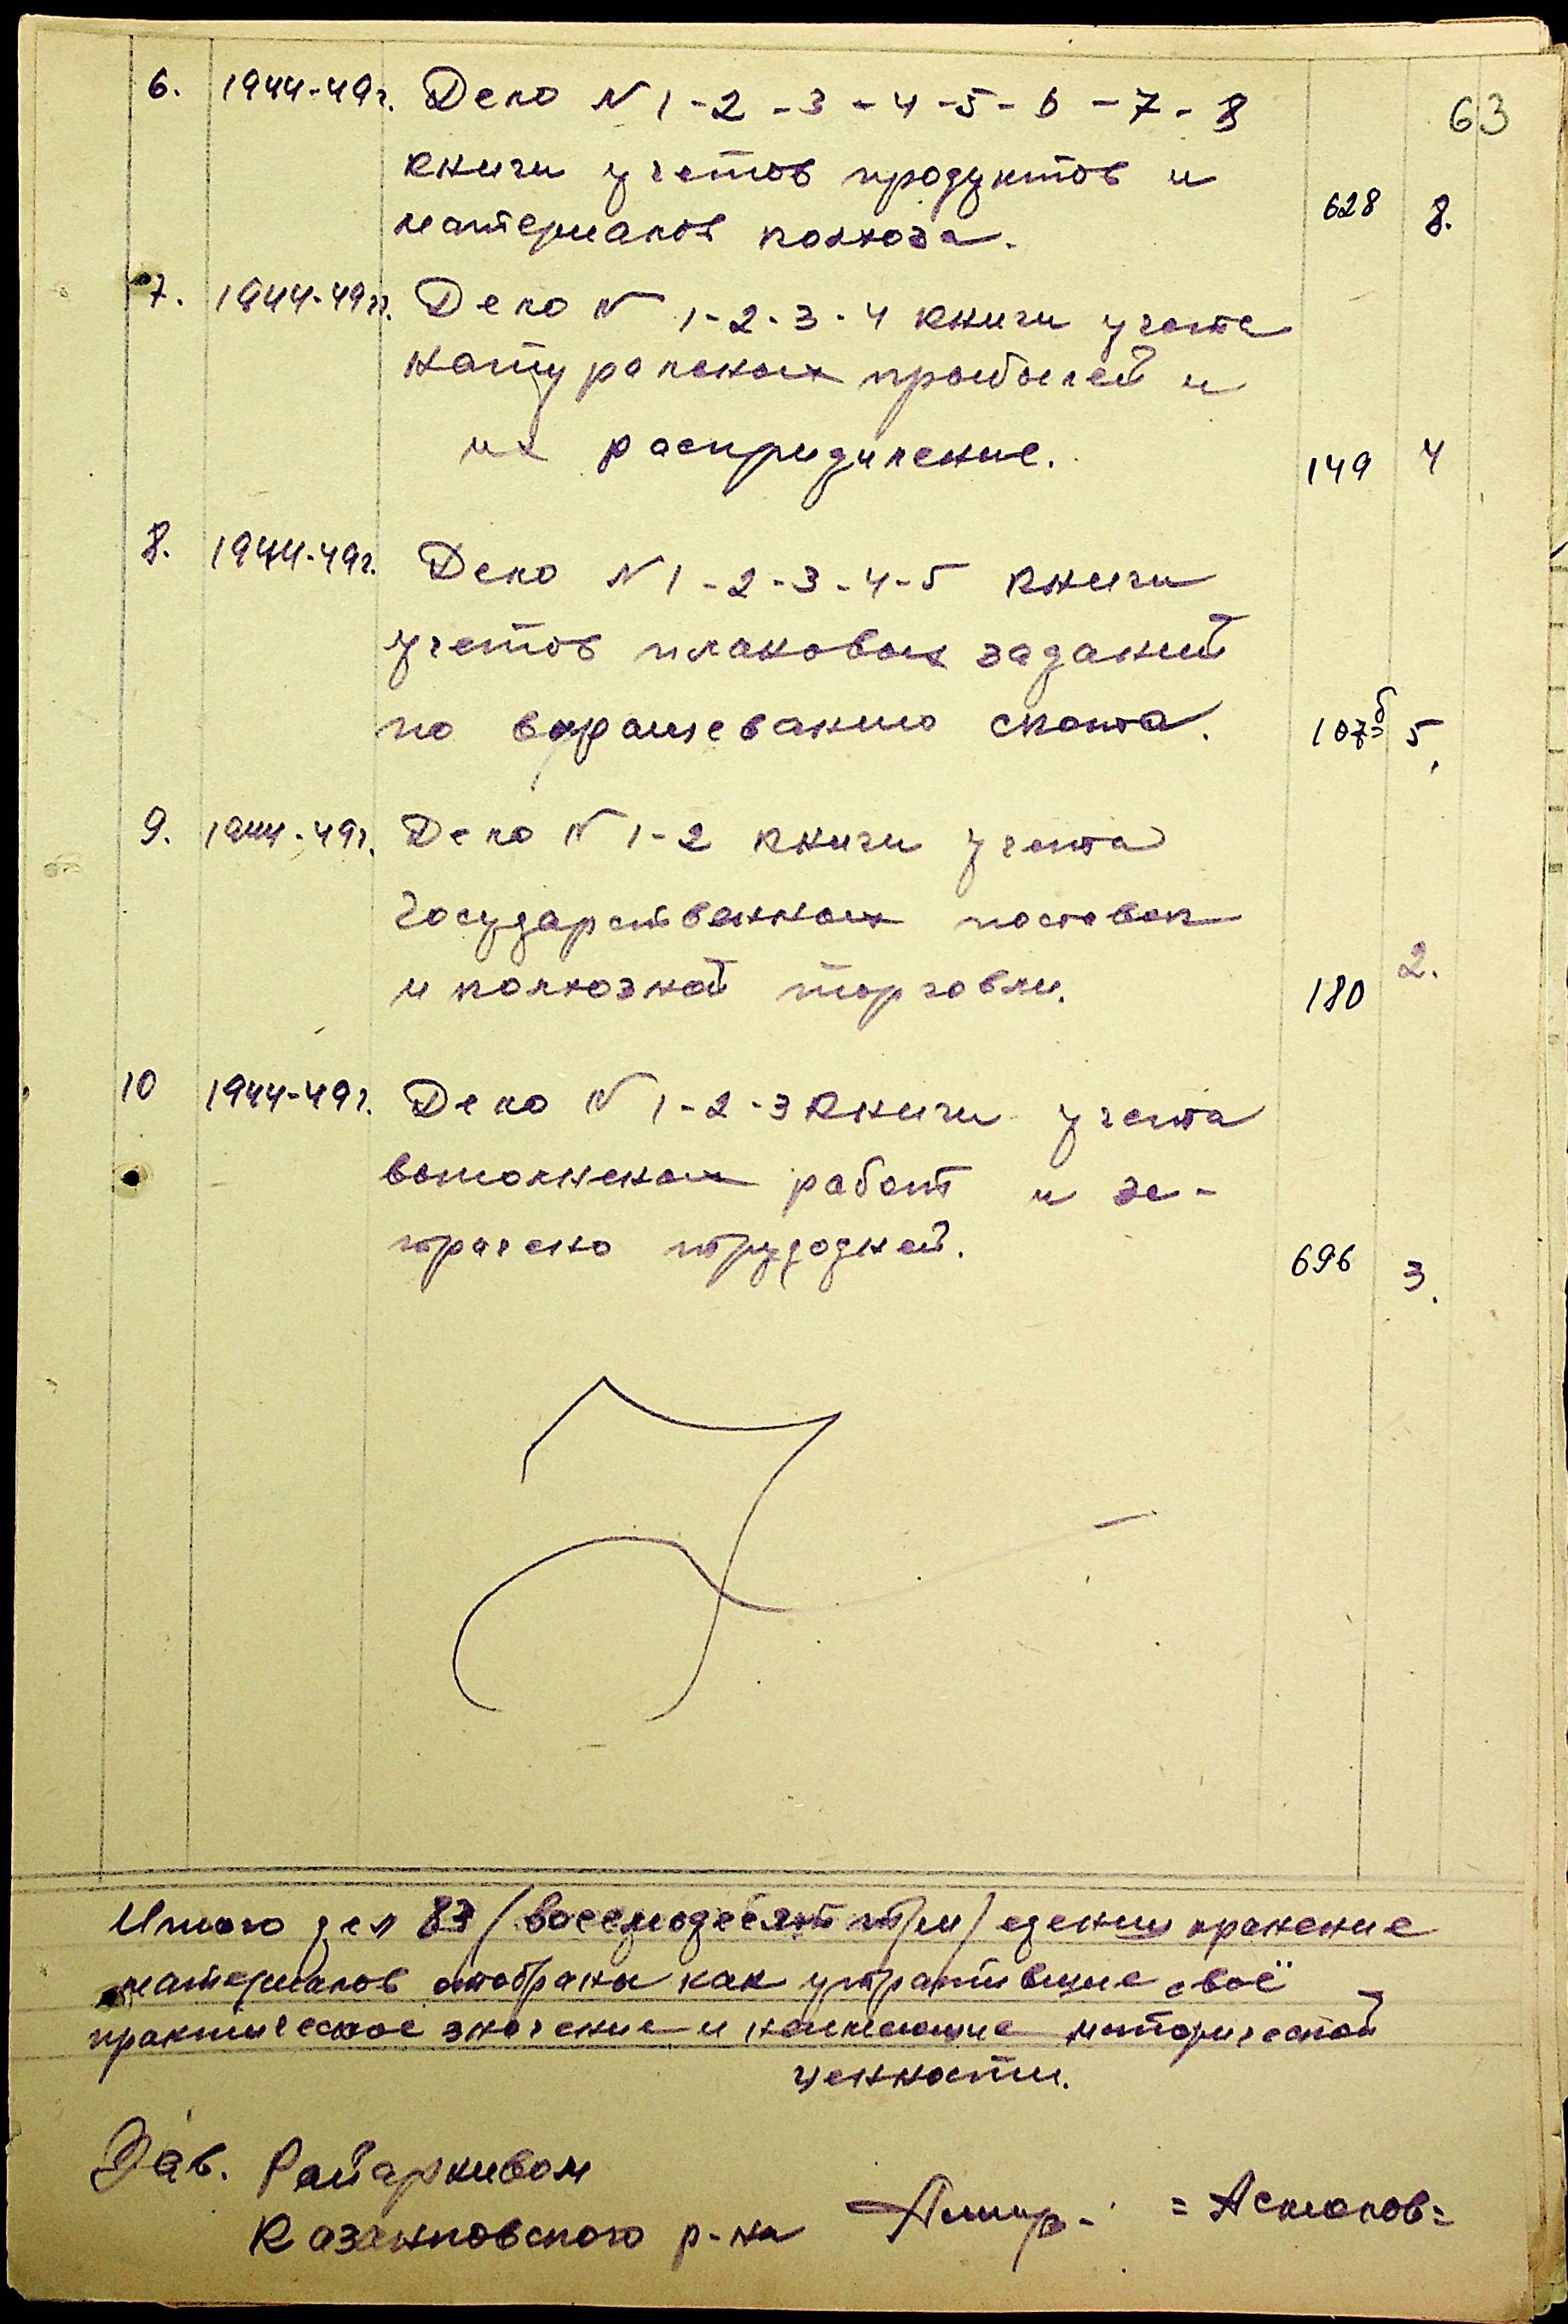 63
6. 1944-49г. Дело N 1-2-3-4-5-6-7-8
книги учетов продуктов и
материалов колхоза. 628 8.
7. 1944-49гг. Дело N 1-2-3-4 книги учета
натуральных прибылей и
их распридиление. 149 4
8. 1944-49г. Дело N 1-2-3-4-5 книги
учетов плановых заданий
по выращеванию скота. 107б 5.
9. 1944-49г. Дело N 1-2 книги учета
государственных поставок
и колхозной торговли. 180 2.
10 1944-49г. Дело N 1-2-3 книги учета
выполненых работ и за-
трачено трудодней. 696 3.
Итого дел 83 /восемодесят три/ едениц хранение
материалов отобраны как утратившие своё
практическое значение и неимеющие исторической
ценности.
Зав. Райархивом
Казанковского р-на = =